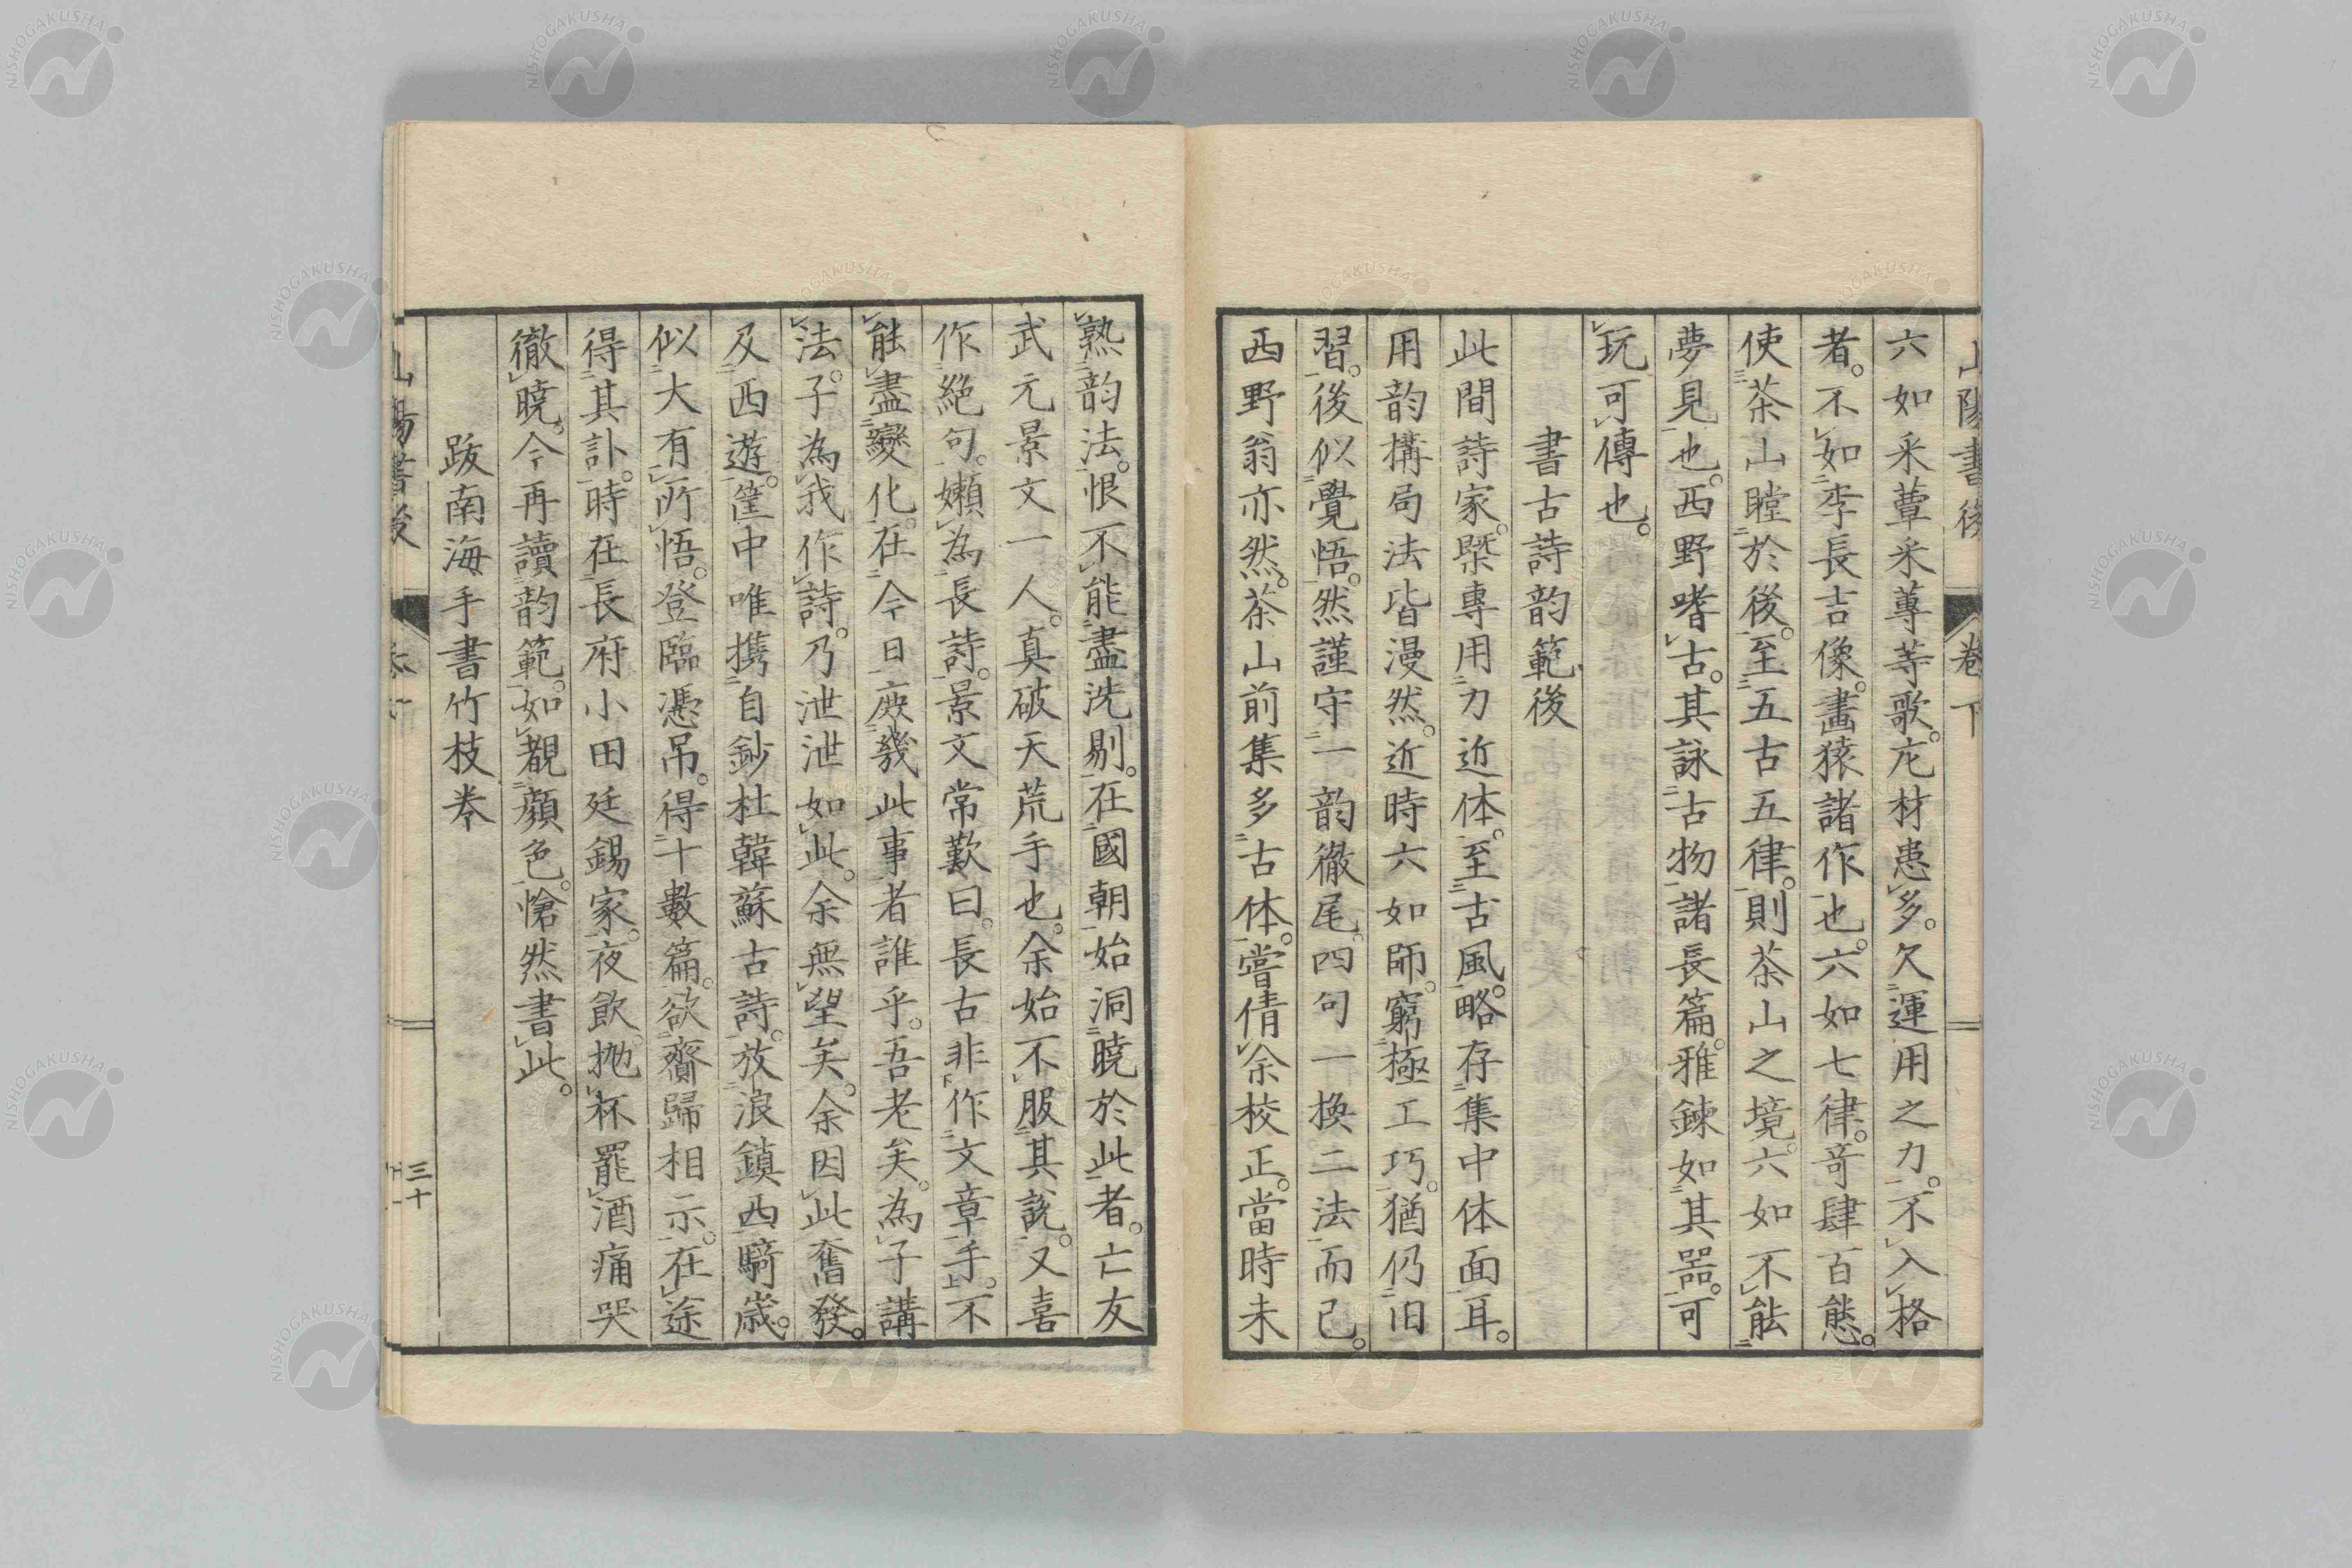 山陽書後 卷下
六如采蕈采蓴等歌。庀材患多。欠運用之力。不入格
者。不如李長吉像。畫猿諸作也。六如七律。奇肆百態。
使茶山瞠於後。至五古五律。則茶山之境。六如不能
夢見也。西野嗜古。其詠古物諸長篇。雅鍊如其器。可
玩可傳也。
書古詩韵範後
此間詩家。槩專用力近体。至古風。略存集中体面耳。
用韵搆局法皆漫然。近時六如師。窮極工巧。猶仍旧
習。後似覺悟。然謹守一韵徹尾。四句一換二法而已。
西野翁亦然。茶山前集多古体。嘗倩余校正。當時未
熟韵法。恨不能盡洗剔。在國朝始洞曉於此者。亡友
武元景文一人。真破天荒手也。余始不服其說。又喜
作絕句。嬾為長詩。景文常歎曰。長古非作文章手。不
能盡變化。在今日庶幾此事者誰乎。吾老矣。為子講
法。子為我作詩。乃泄泄如此。余無望矣。余因此奮發。
及西遊。篋中唯携自鈔杜韓蘇古詩。放浪鎮西騎歲。
似大有所悟。登臨憑吊。得十數篇。欲齎歸相示。在途
得其訃。時在長府小田廷錫家。夜飲拋杯罷酒痛哭
徹曉。今再讀韵範。如覩顏色。愴然書此。
跋南海手書竹枝卷
山陽書後
三十
NISHOGAKUSHA